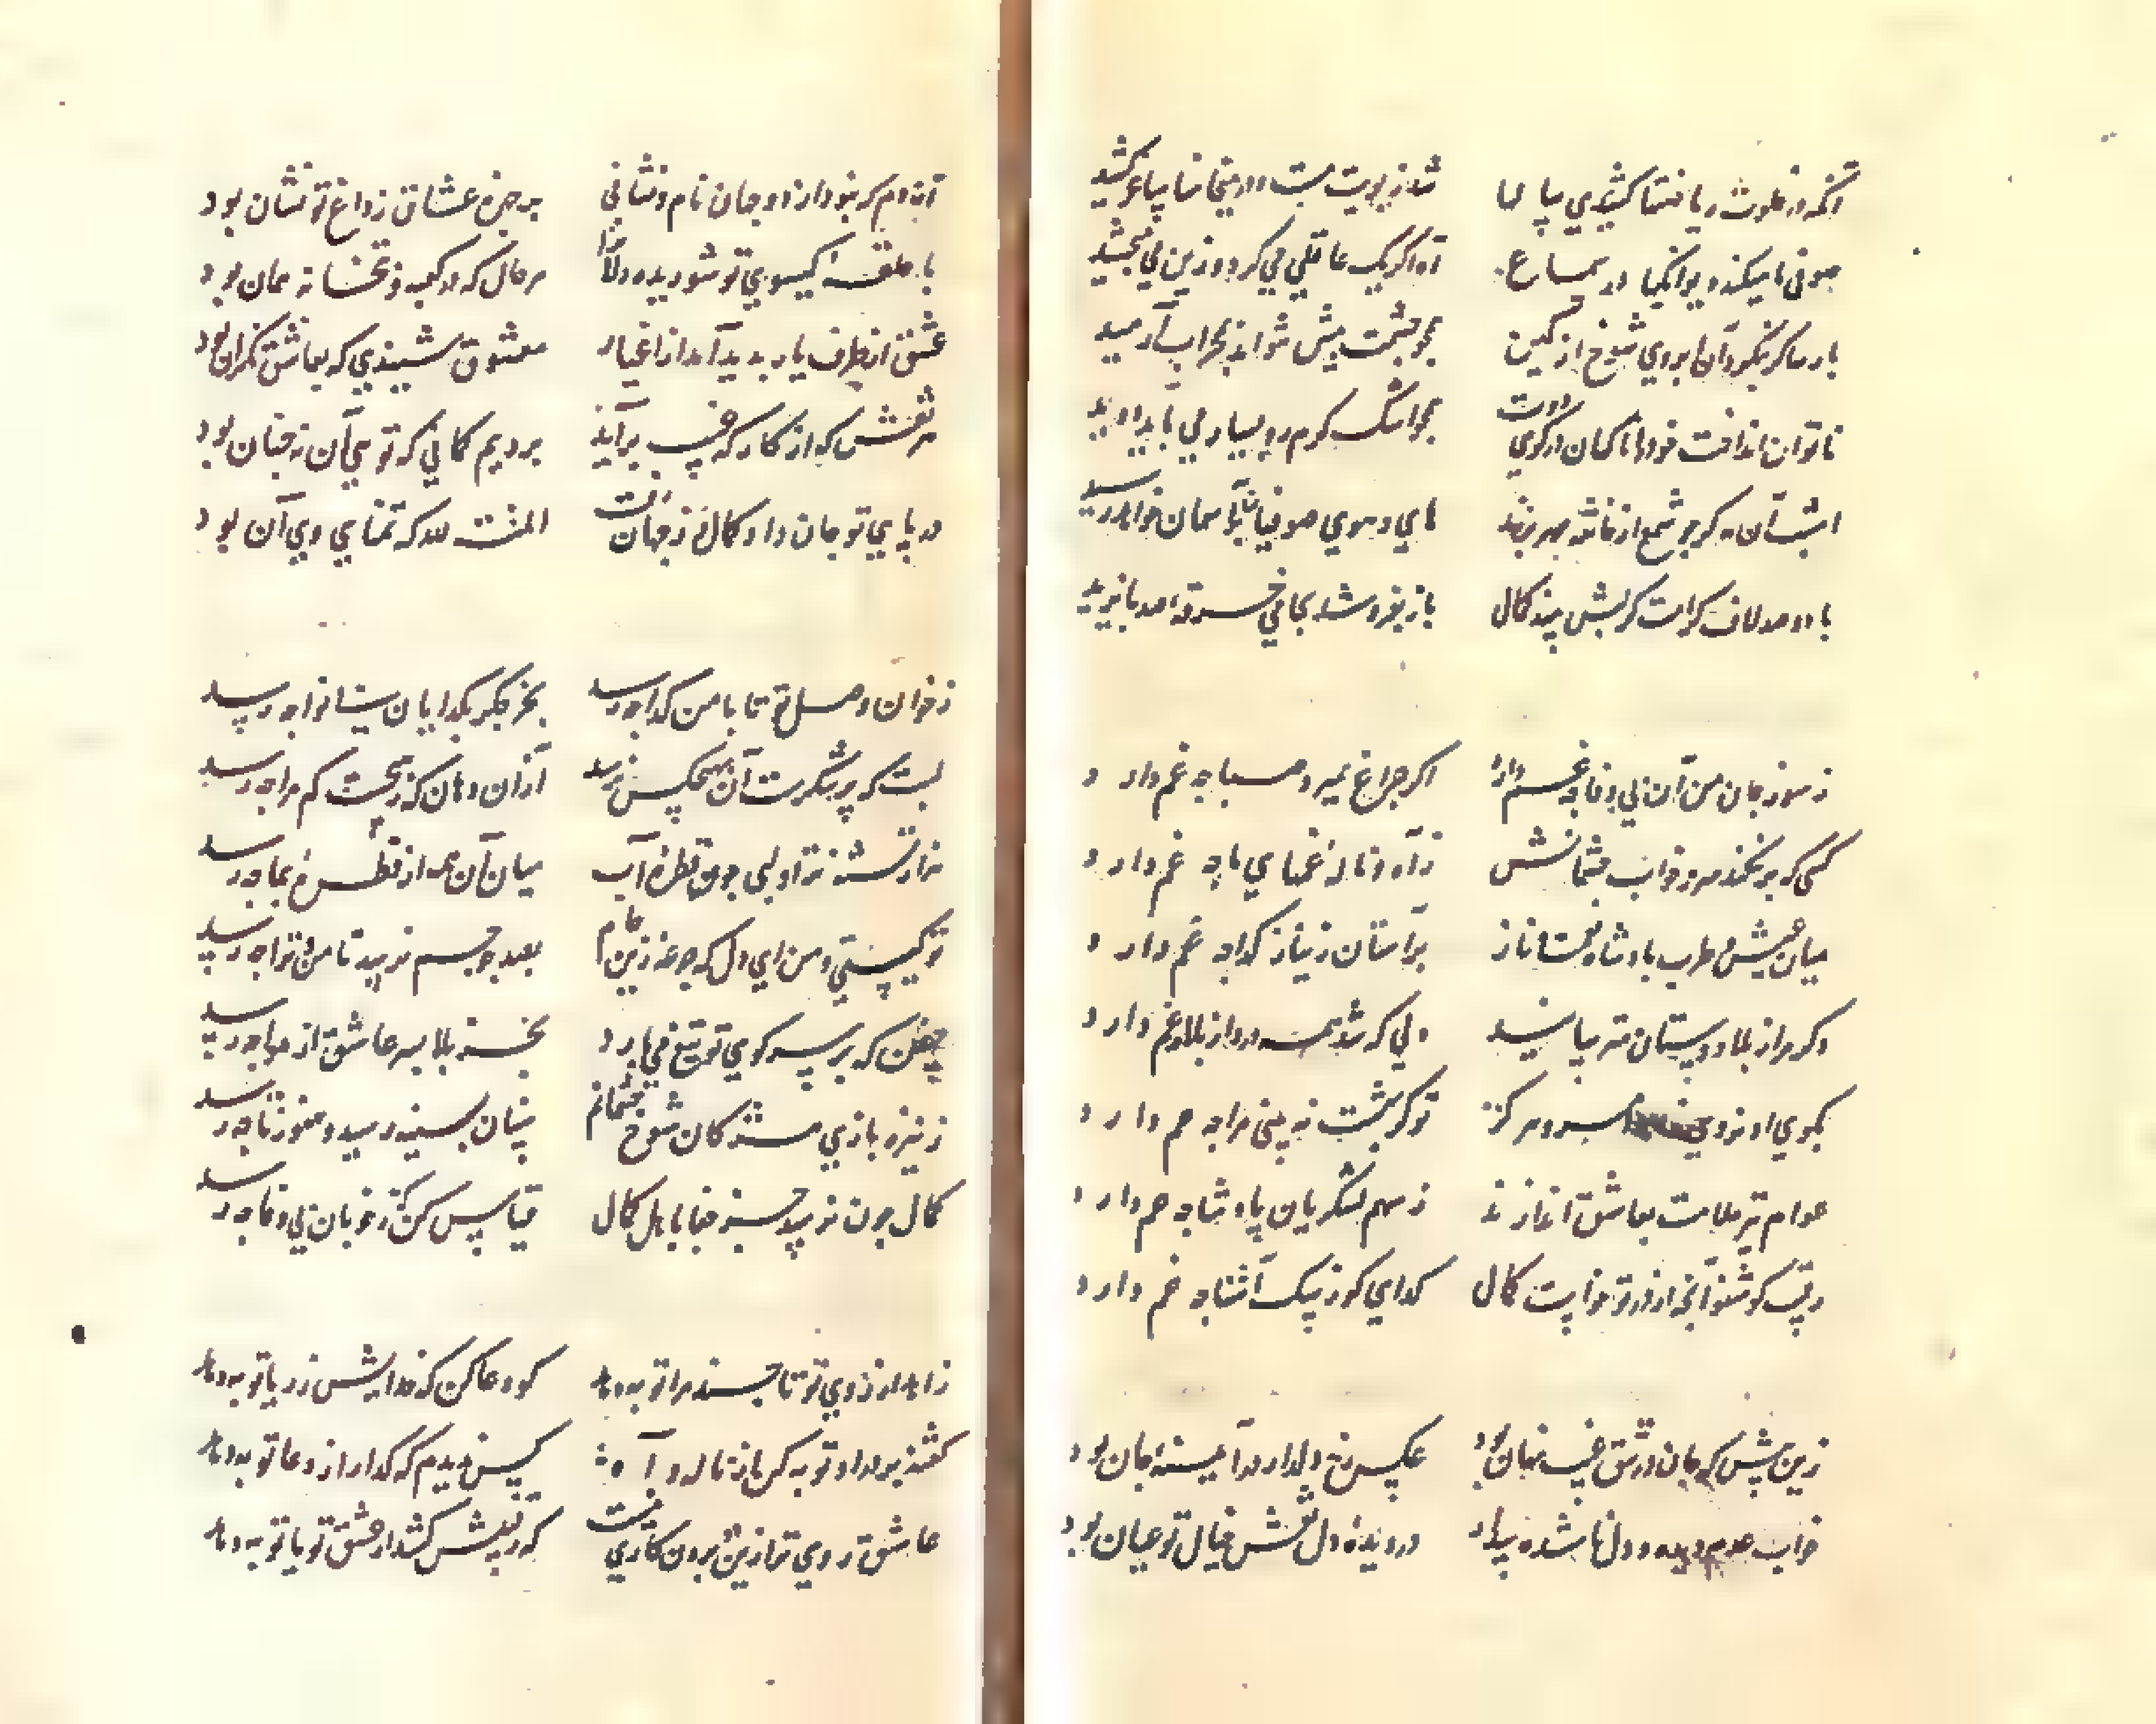 آنکه در خلوت ریاضتها کشیدی پیاله‌ها    شد ز بویت مست و در میخانه پیاپی کشید
صوفی ما میکند دیوانگیها در سماع    آه اگر یک عاقلی می‌کرد و زین می چشید
پارسا گر بنگرد آن ابروی شوخ از کمین    همچو چشمت پیش نتواند بمحراب آرمید
تا توان انداخت خود را ناگهان در کوی دوست    همچو اشک گرم رو بسیار می باید دوید
های و هوی صوفیان تا آسمان خواهد رسید
با دو صد لاف کرامت گر لبش بیند کمال    باز بفروشد بجامی خرقه صد بایزید
ز سوز جان من آن بی وفا چه غم دارد    اگر چراغ بمیرد صبا چه غم دارد
کسی که بر نکند سر ز خواب چشمانش    ز آه و ناله شبهای ما چه غم دارد
میان عیش و طرب پادشاه مسند ناز    بر آستان ز نیاز گدا چه غم دارد
دگر مرا ز بلا دوستان مترسانید    دلی که شد همه درد از بلا چه غم دارد
بکوی او نروی سر و مرکز    تو گر بهشت نبینی مرا چه غم دارد
عوام تیر ملامت بعاشق اندازند    ز سهم لشکریان پادشا چه غم دارد
رقیب کو شنو آنچه از در تو خواست کمال    گدای کو ز سگ آشنا چه غم دارد
زین پیش که جان در تتق غیب نهان بود    عکس رخ دلدار در آیینه جان بود
خواب عدم دیده دلها شده بیدار    در دیده دل نقش خیال تو عیان بود
آن دم که نبود از دو جهان نام و نشانی    بر چهره عشاق ز داغ تو نشان بود
با حلقه گیسوی تو شوریده دلان را    هر حال که در کعبه و بتخانه همان بود
عشق از طرف یار پدید آمد از اغیار    معشوق شنیدی که بعاشق نگران بود
هر نقش که از کارگه غیب برآید    بردیم گمانی که تویی آن نه چنان بود
در پای تو جان داد کمال و ز جهان رفت    المنة لله که تمنای وی آن بود
ز خوان وصل تو تا با من گدا چه رسد    بجز جگر بگدایان بینوا چه رسد
لبت که پر شکرست آن بهیچکس نرسد    از آن دهان که ز هیچست کم مرا چه رسد
هزار تشنه ترا و لبی چو قطره آب    میان آن همه از قطره‌ای بما چه رسد
تو کیستی و من ای دل که جرعه زین جام    بعهد جم نرسد تا من و ترا چه رسد
چنین که بر سر کوی تو تیغ می بارد    بجز بلا بسر عاشق از هوا چه رسد
ز نیزه بازی مژگان شوخ چشمانم    سنان بسینه رسید و هنوز تا چه رسد
کمال چون نرسد جز جفا باهل کمال    قیاس کن که ز خوبان بی وفا چه رسد
زاهد از روی تو تا چند مرا توبه دهد    گو دعا کن که خدایش ز ریا توبه دهد
گفتند بود او توبه کس از ناله و آه    کس ندیدم که گدا را ز دعا توبه دهد
عاشق روی ترا زین بتر گناهی نیست    که رقیبش کشد از عشق تو یا توبه دهد